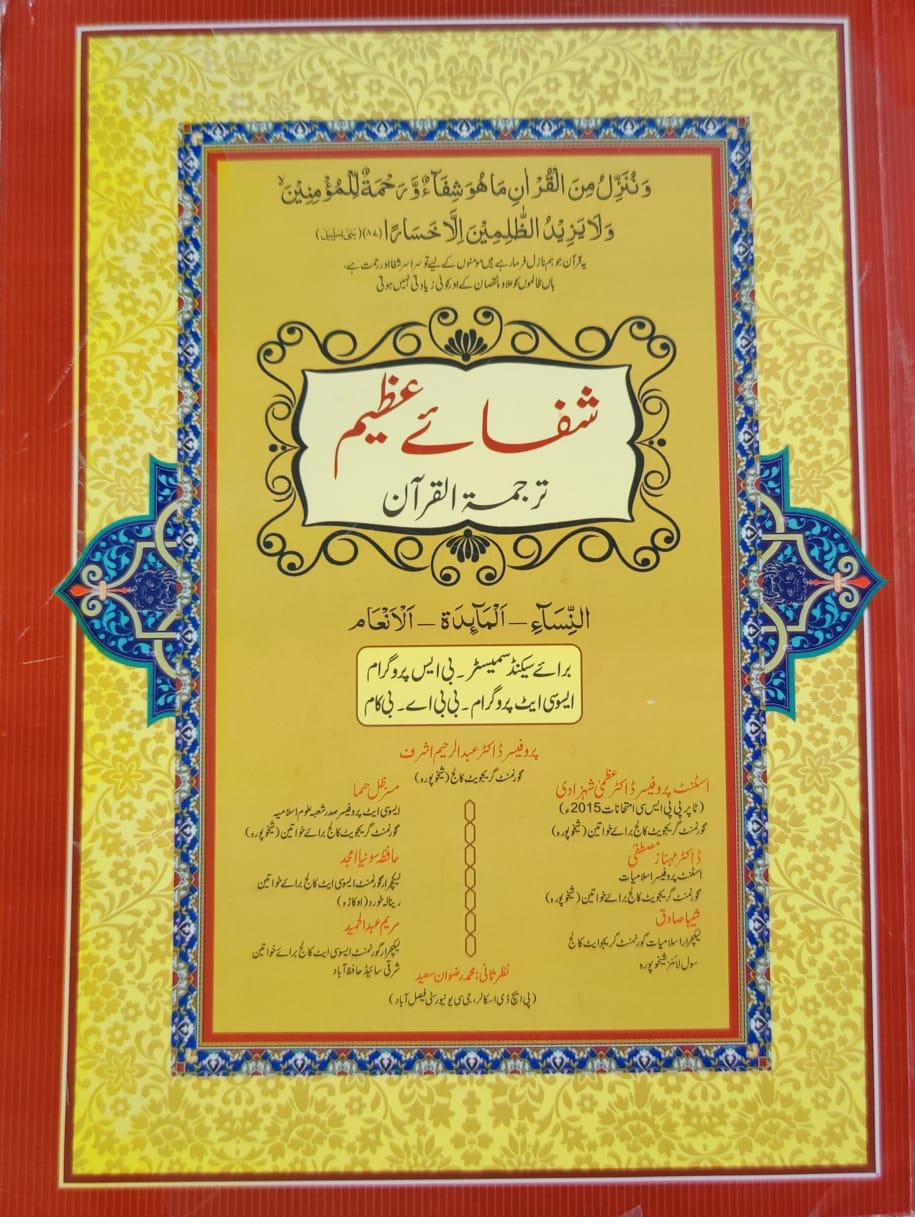 وَنُنَزِّلُ مِنَ الْقُرْاٰنِ مَا هُوَ شِفَآءٌ وَّرَحْمَةٌ لِّلْمُؤْمِنِيْنَ ۙ
وَلَا يَزِيْدُ الظّٰلِمِيْنَ اِلَّا خَسَارًا (۸۲) (بنی اسرائیل)
یہ قرآن جو ہم نازل فرما رہے ہیں مومنوں کے لیے تو سراسر شفا اور رحمت ہے،
ہاں ظالموں کو علاوہ نقصان کے اور کوئی زیادتی نہیں ہوتی
شفائے عظیم
ترجمۃ القرآن
النِّسَآءِ – اَلْمَآئِدَة – اَلْاَنْعَام
برائے سیکنڈ سمیسٹر۔ بی ایس پروگرام
ایسوسی ایٹ پروگرام۔ بی بی اے۔ بی کام
پروفیسر ڈاکٹر عبدالرحیم اشرف
گورنمنٹ گریجویٹ کالج (شیخوپورہ)
اسٹنٹ پروفیسر ڈاکٹر عظمیٰ شہزادی
(ٹاپر پی پی ایس سی امتحانات 2015ء)
گورنمنٹ گریجویٹ کالج برائے خواتین (شیخوپورہ)
ڈاکٹر مہناز مصطفیٰ
اسٹنٹ پروفیسر اسلامیات
گورنمنٹ گریجویٹ کالج برائے خواتین (شیخوپورہ)
شیبا صادق
لیکچرار اسلامیات گورنمنٹ گریجوایٹ کالج
سول لائنز شیخوپورہ
مسز ظل ھما
ایسوسی ایٹ پروفیسر صدر شعبہ علوم اسلامیہ
گورنمنٹ گریجویٹ کالج برائے خواتین (شیخوپورہ)
حافظہ سونیا امجد
لیکچرار گورنمنٹ ایسوسی ایٹ کالج برائے خواتین
رینالہ خورد (اوکاڑہ)
مریم عبدالحمید
لیکچرار گورنمنٹ ایسوسی ایٹ کالج برائے خواتین
شرقی سائیڈ حافظ آباد
نظر ثانی: محمد رضوان سعید
(پی ایچ ڈی اسکالر، جی سی یونیورسٹی فیصل آباد)